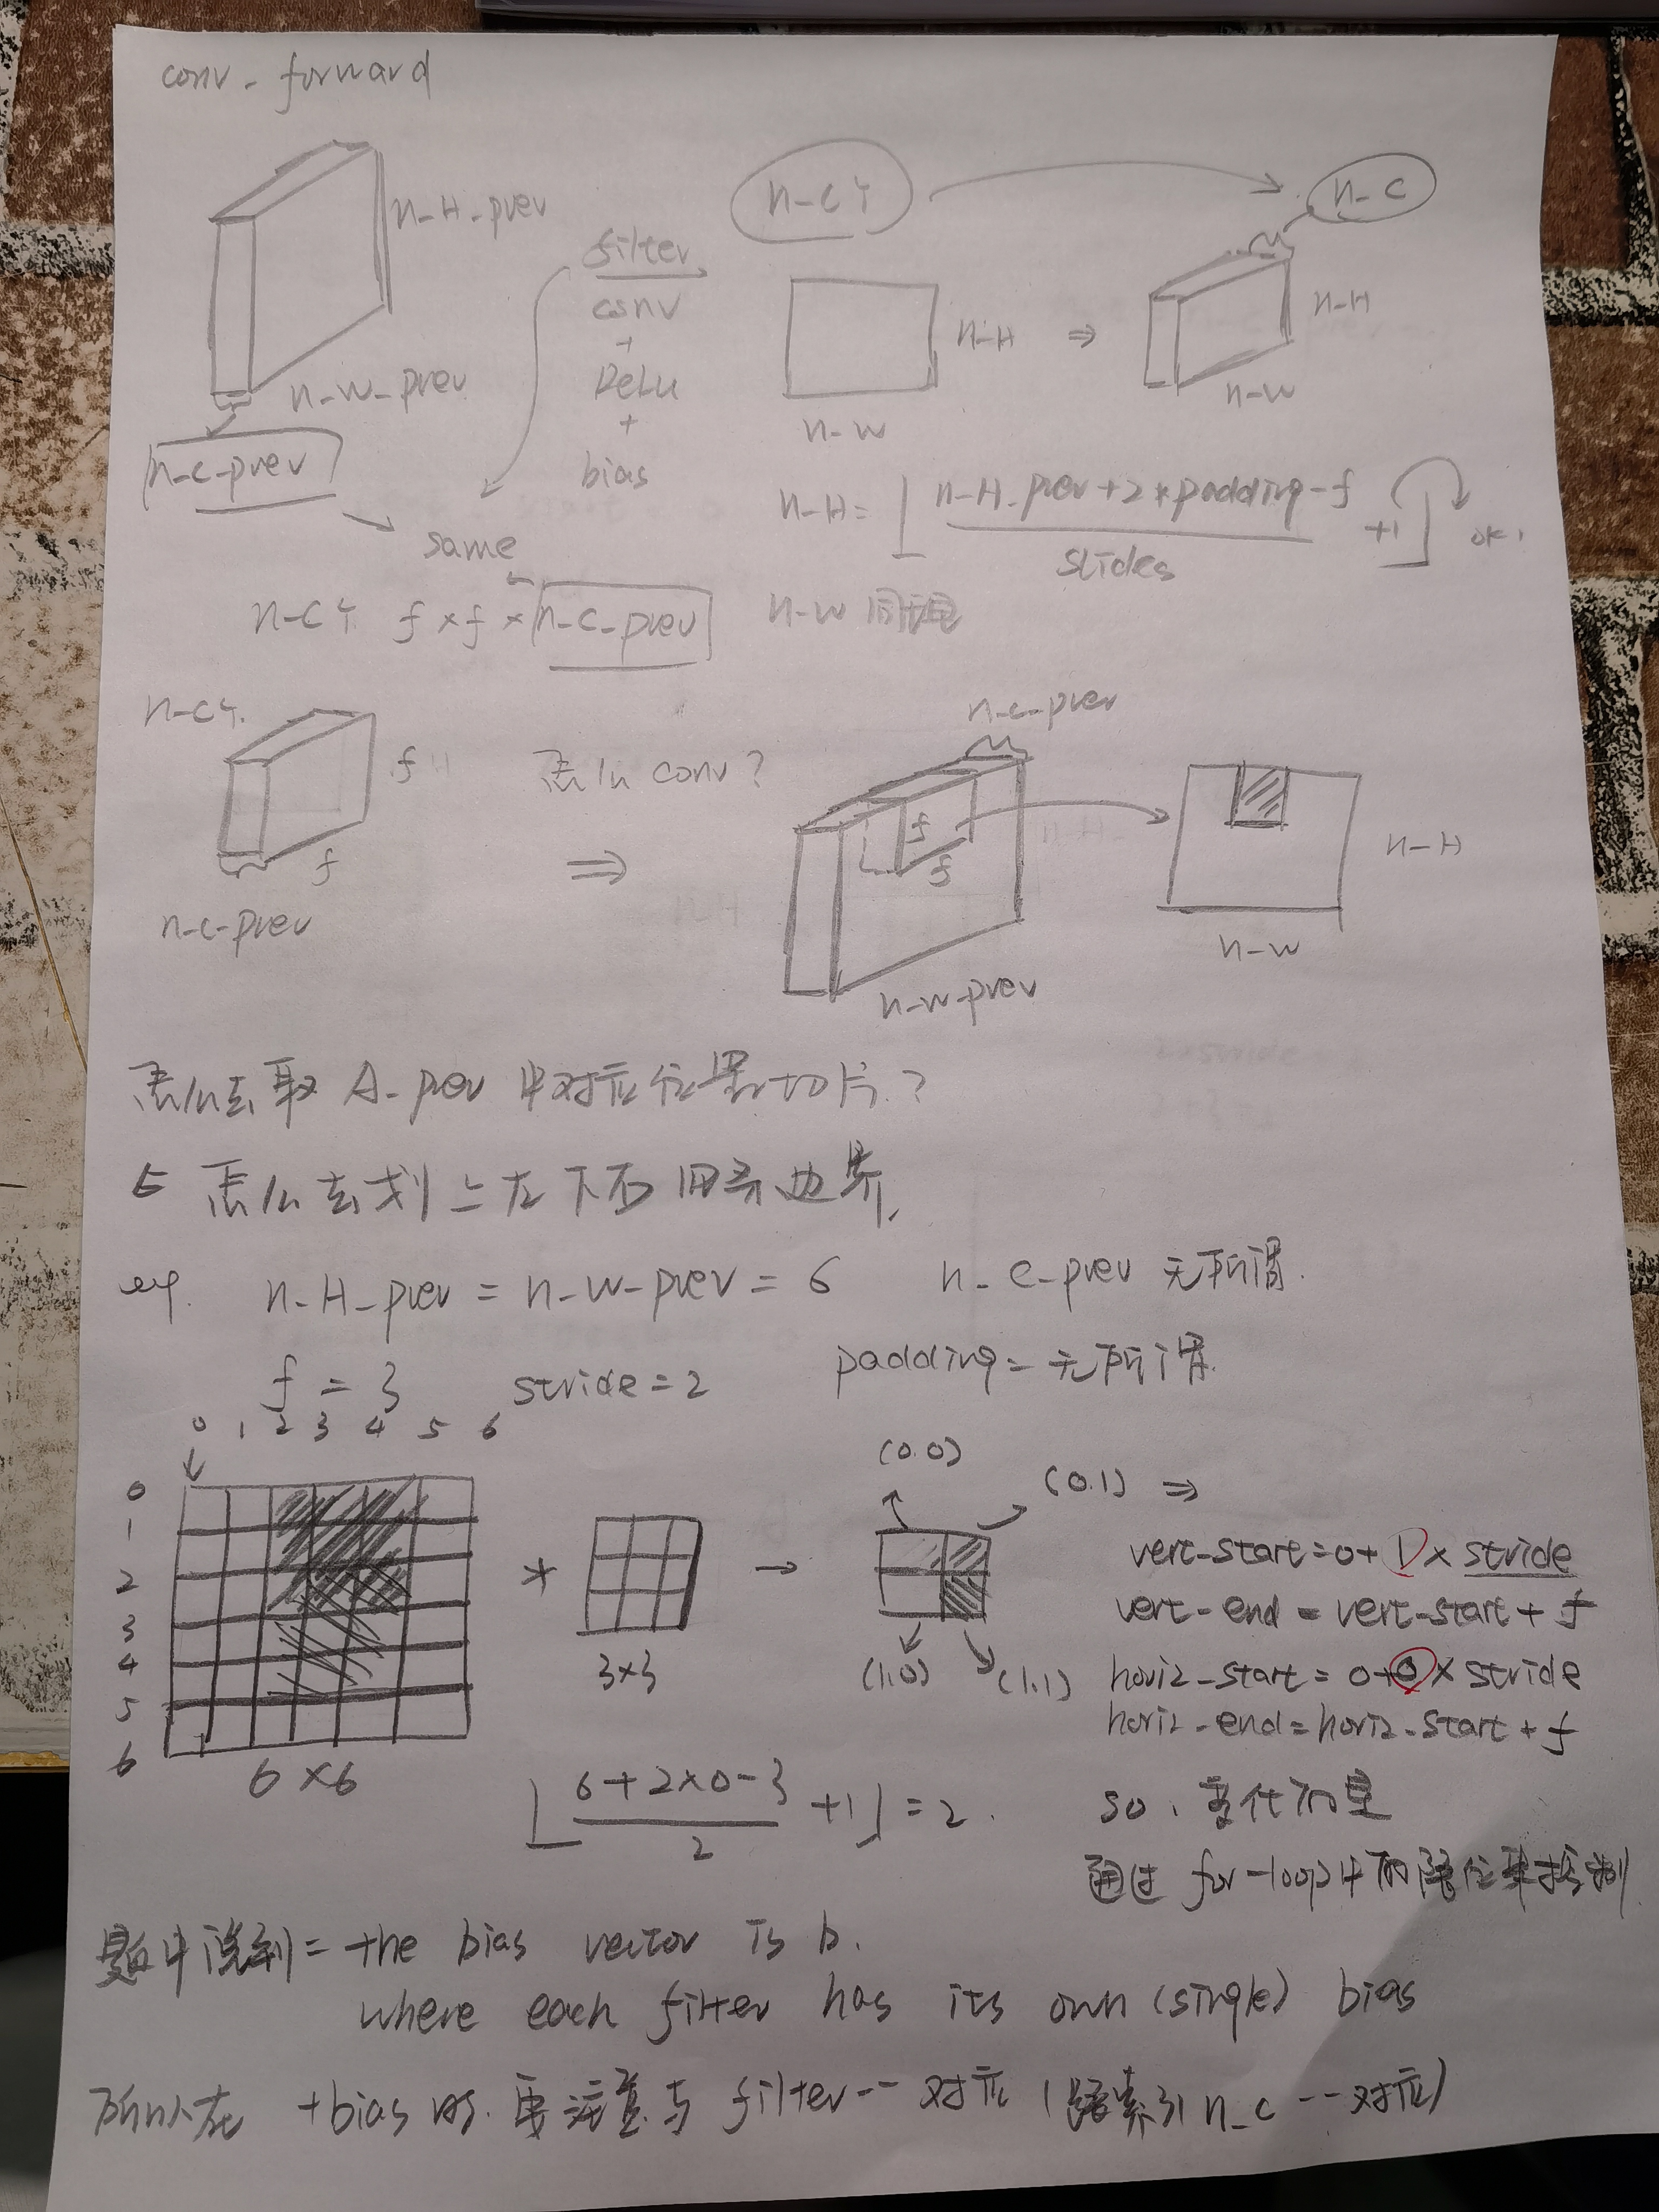 conv - forward
n-H-prev
n-w-prev
n-c-prev
same
filter
conv
+
ReLu
+
bias
n-c个
n-H
n-w
⇒
n-c
n-H
n-w
n-H = ⌊ (n-H-prev+2*padding-f) / slides +1 ⌋ or
n-c个 f × f × n-c-prev
n-w 同理
n-c个.
f
f
n-c-prev
怎么 conv?
⇒
n-c-prev
f
f
n-w-prev
n-H
n-w
怎么去取 A-prev 中对应位置切片?
怎么去划上左下右 四条边界.
eg. n-H-prev = n-w-prev = 6 n-c-prev 无所谓.
f = 3 stride = 2 padding = 无所谓.
0 1 2 3 4 5 6
0
1
2
3
4
5
6
6×6
*
3×3
→
(0.0)
(0.1) ⇒
(1.0)
(1.1)
vert-start = 0+1× stride
vert-end = vert-start + f
horiz-start = 0+0× stride
horiz-end = horiz-start + f
⌊ (6+2×0-3) / 2 +1 ⌋ = 2.
so,
通过 for-loop中的 来控制
题中说到= the bias vector is b.
where each filter has its own (single) bias
所以在 +bias 时. 要注意与 filter 一一对应 ( 索引 n_c 一一对应)